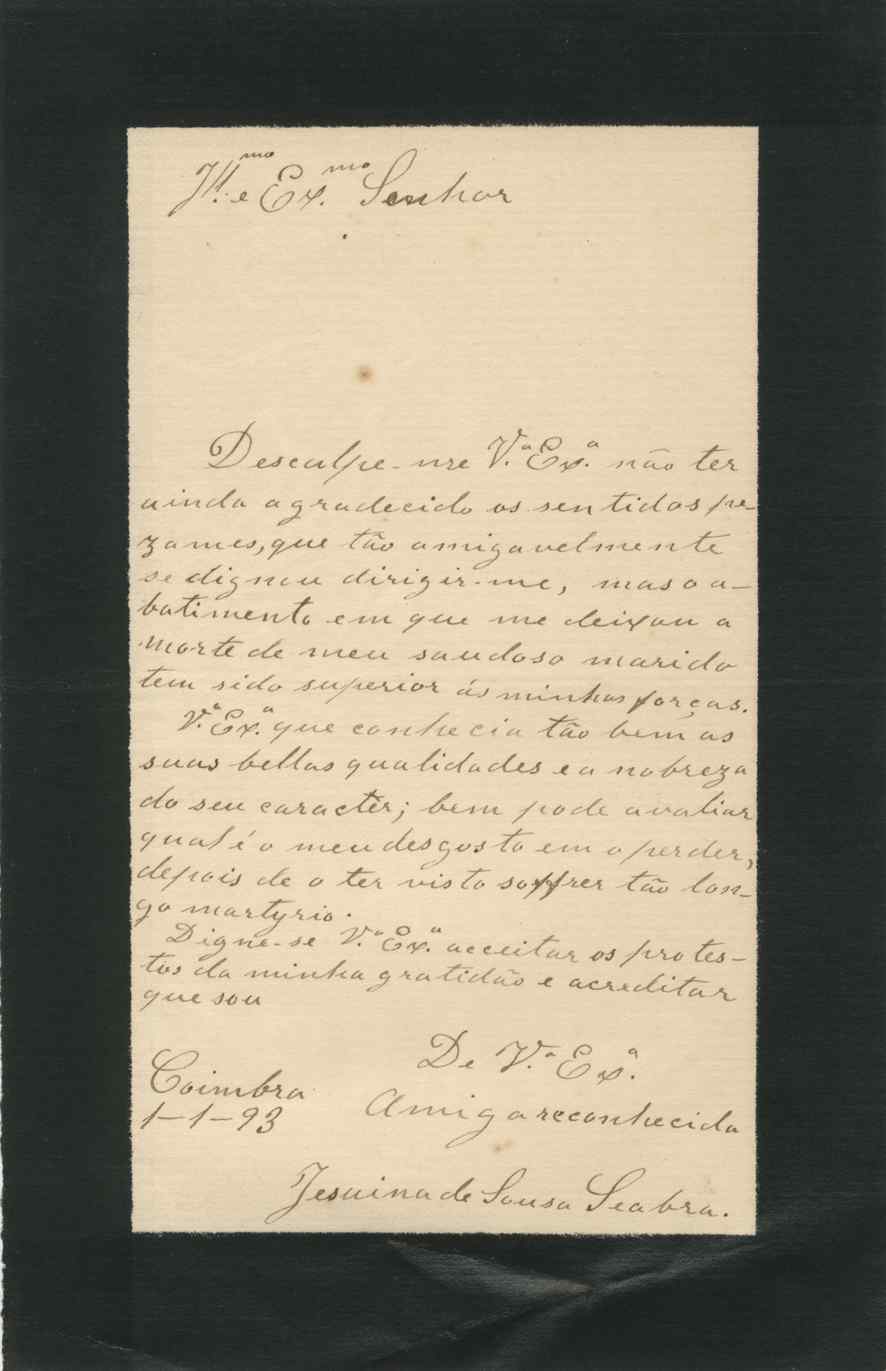 Ill.mo e Ex.mo Senhor
Desculpe-me V.ª Ex.ª não ter
ainda agradecido os sentidos pe-
zames, que tão amigavelmente
se dignou dirigir-me, mas o a-
batimento em que me deixou a
morte de meu saudoso marido
tem sido superior ás minhas forças.
V.ª Ex.ª que conhecia tão bem as
suas bellas qualidades e a nobreza
do seu caractér; bem pode avaliar
qual é o meu desgosto em o perder,
depois de o ter visto soffrer tão lon-
go martyrio.
Digne-se V.ª Ex.ª acceitar os protes-
tos da minha gratidão e acreditar
que sou
De V.ª Ex.ª
Coimbra
Amiga reconhecida
1-1-93
Jesuina de Sousa Seabra.